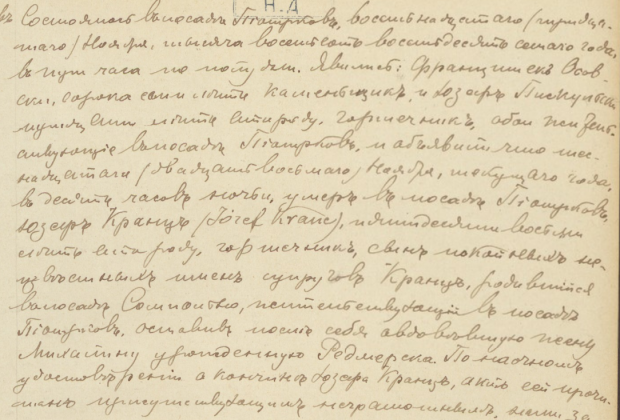 Г.Н.А
Состоялось въ посадѣ Піотрковъ, восемнадцатаго (тридца-
таго) Ноября, тысяча восемьсотъ восемьдесятъ седьмаго года,
въ пять часа по полудни. Явились: Францишекъ Осов-
ски, сорока семи лѣтъ каменьщикъ, и Іозефъ
лѣтъ отъ роду, горшечникъ, оба жительст-
вующіе въ посадѣ Піотрковъ, и объявили что шес-
надцатаго (двадцать восьмаго) Ноября, текущаго года,
въ десять часовъ ночьи, умеръ въ посадѣ Піотрковъ,
Іозефъ Кранцъ (Józef Kranc), пятидесяти восьми
лѣтъ отъ роду, горшечникъ, сынъ покойныхъ не-
извѣстныхъ именъ супруговъ Кранцъ, родившійся
въ посадѣ Сомпольно, жительствующій въ посадѣ
Піотрковъ, оставивъ послѣ себя овдовѣвшую жену
Михалину урожденную Редмерска. По наочномъ
удостовѣреніи о кончинѣ Іозефа Кранцъ, актъ сей прочи-
танъ присутствующимъ неграмотнымъ, нами за